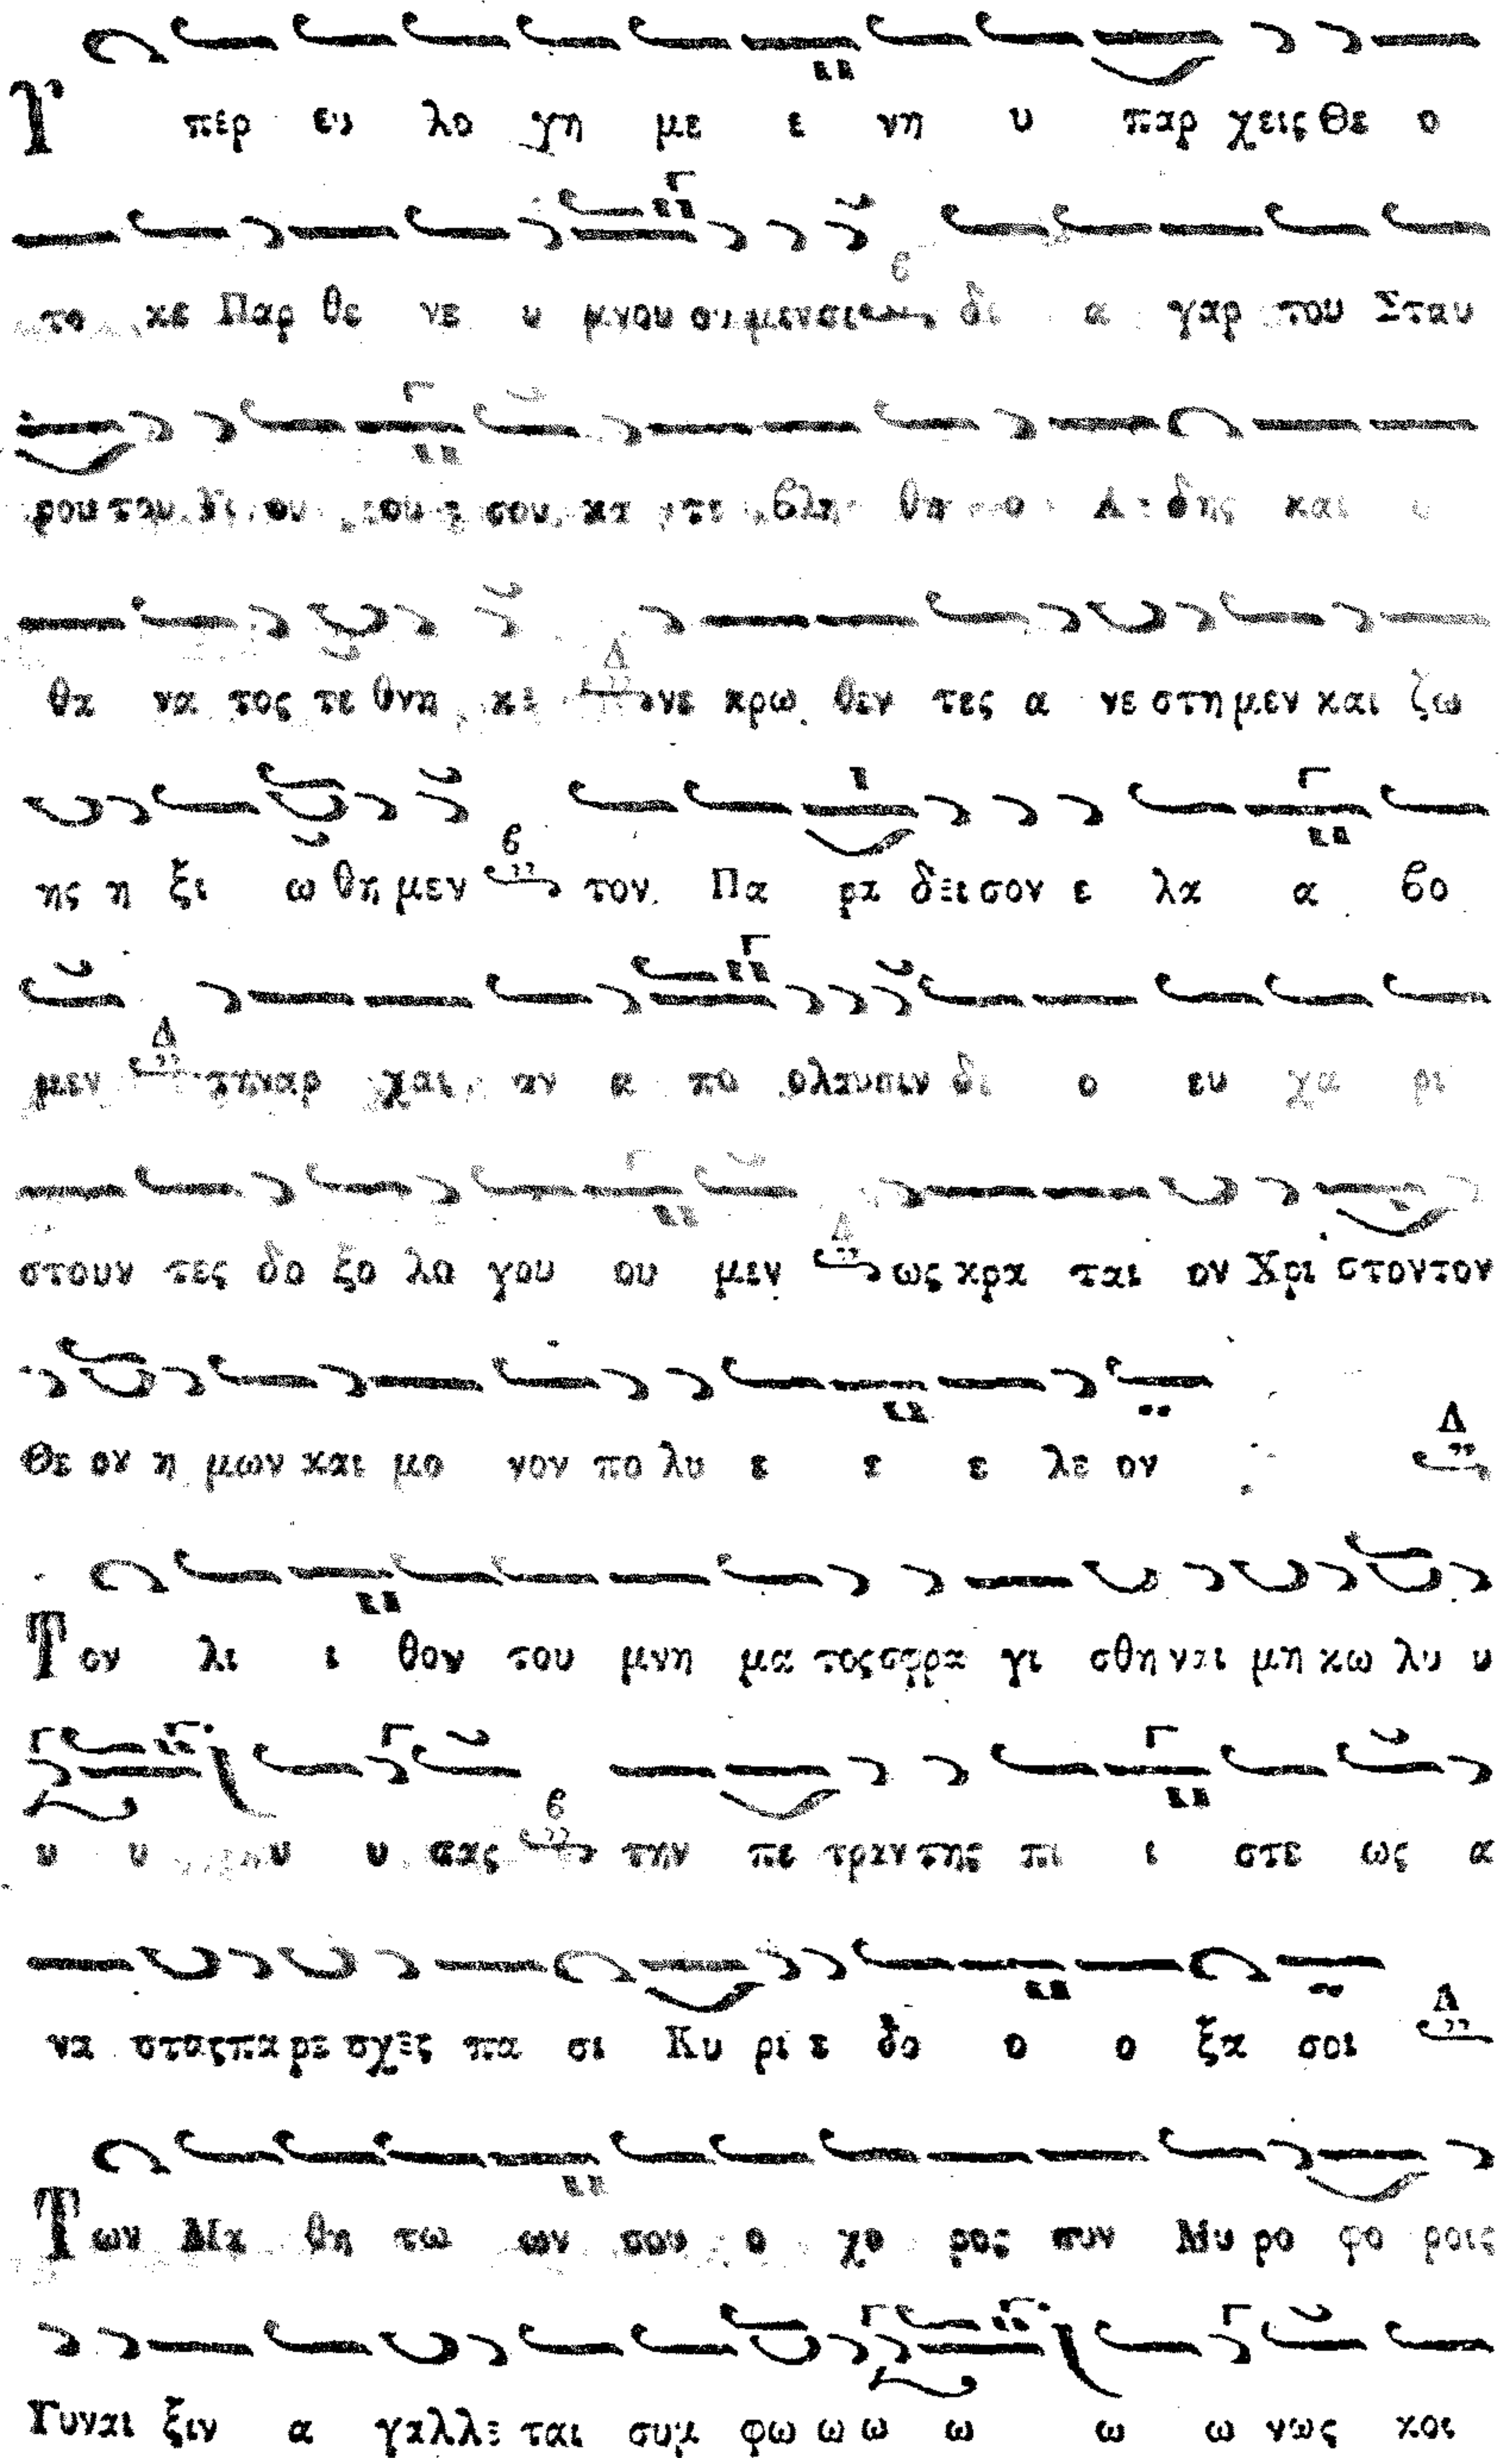 Υ περ ευ λο γη με ε νη υ παρ χεις Θε ο
το κε Παρ θε νε υ μνου ου μεν σε β δι α γαρ του Σταυ
ρου του Υι ου ου ου σου κα τε βλη θη ο Α δης και ο
θα να τος τε θνη κε Δ νε κρω θεν τες α νε στη μεν και ζω
ης η ξι ω θη μεν β τον Πα ρα δει σον ε λα α βο
μεν Δ την αρ χαι αν α πο ολαυσιν δι ο ευ χα ρι
στουν τες δο ξο λο γου ου μεν Δ ως κρα ται ον Χρι στον τον
Θε ον η μων και μο νον πο λυ ε ε ε λε ον Δ
Τον λι ι θον του μνη μα τος σφρα γι σθη ναι μη κω λυ υ
υ υ υ υ σας β την πε τραν της πι ι στε ως α
να στας πα ρε σχες πα σι Κυ ρι ε δο ο ο ξα σοι Δ
Των Μα θη τω ων σου ο χο ρος συν Μυ ρο φο ροις
Γυναι ξιν α γαλλε ται συμ φω ω ω ω ω ω νως κοι